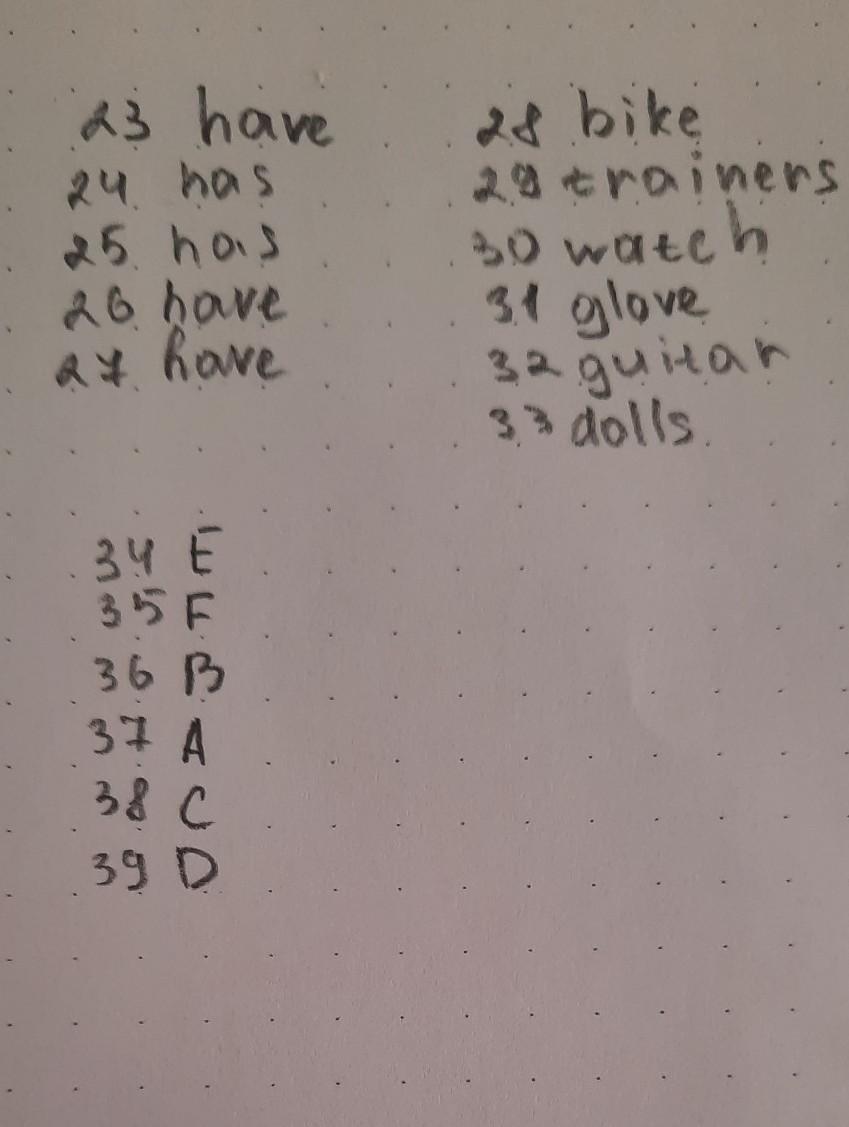 23 have
24 has
25 has
26 have
27 have
28 bike
29 trainers
30 watch
31 glove
32 guitar
33 dolls
34 E
35 F
36 B
37 A
38 C
39 D